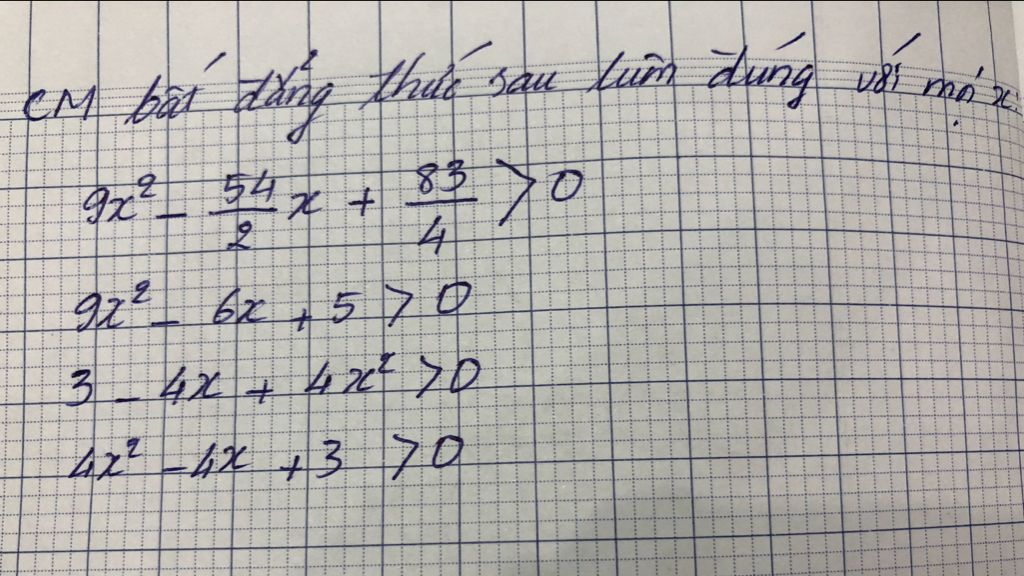 CM bất đẳng thức sau luôn đúng với mọi x
9x² - 54/2 x + 83/4 > 0
9x² - 6x + 5 > 0
3 - 4x + 4x² > 0
4x² - 4x + 3 > 0